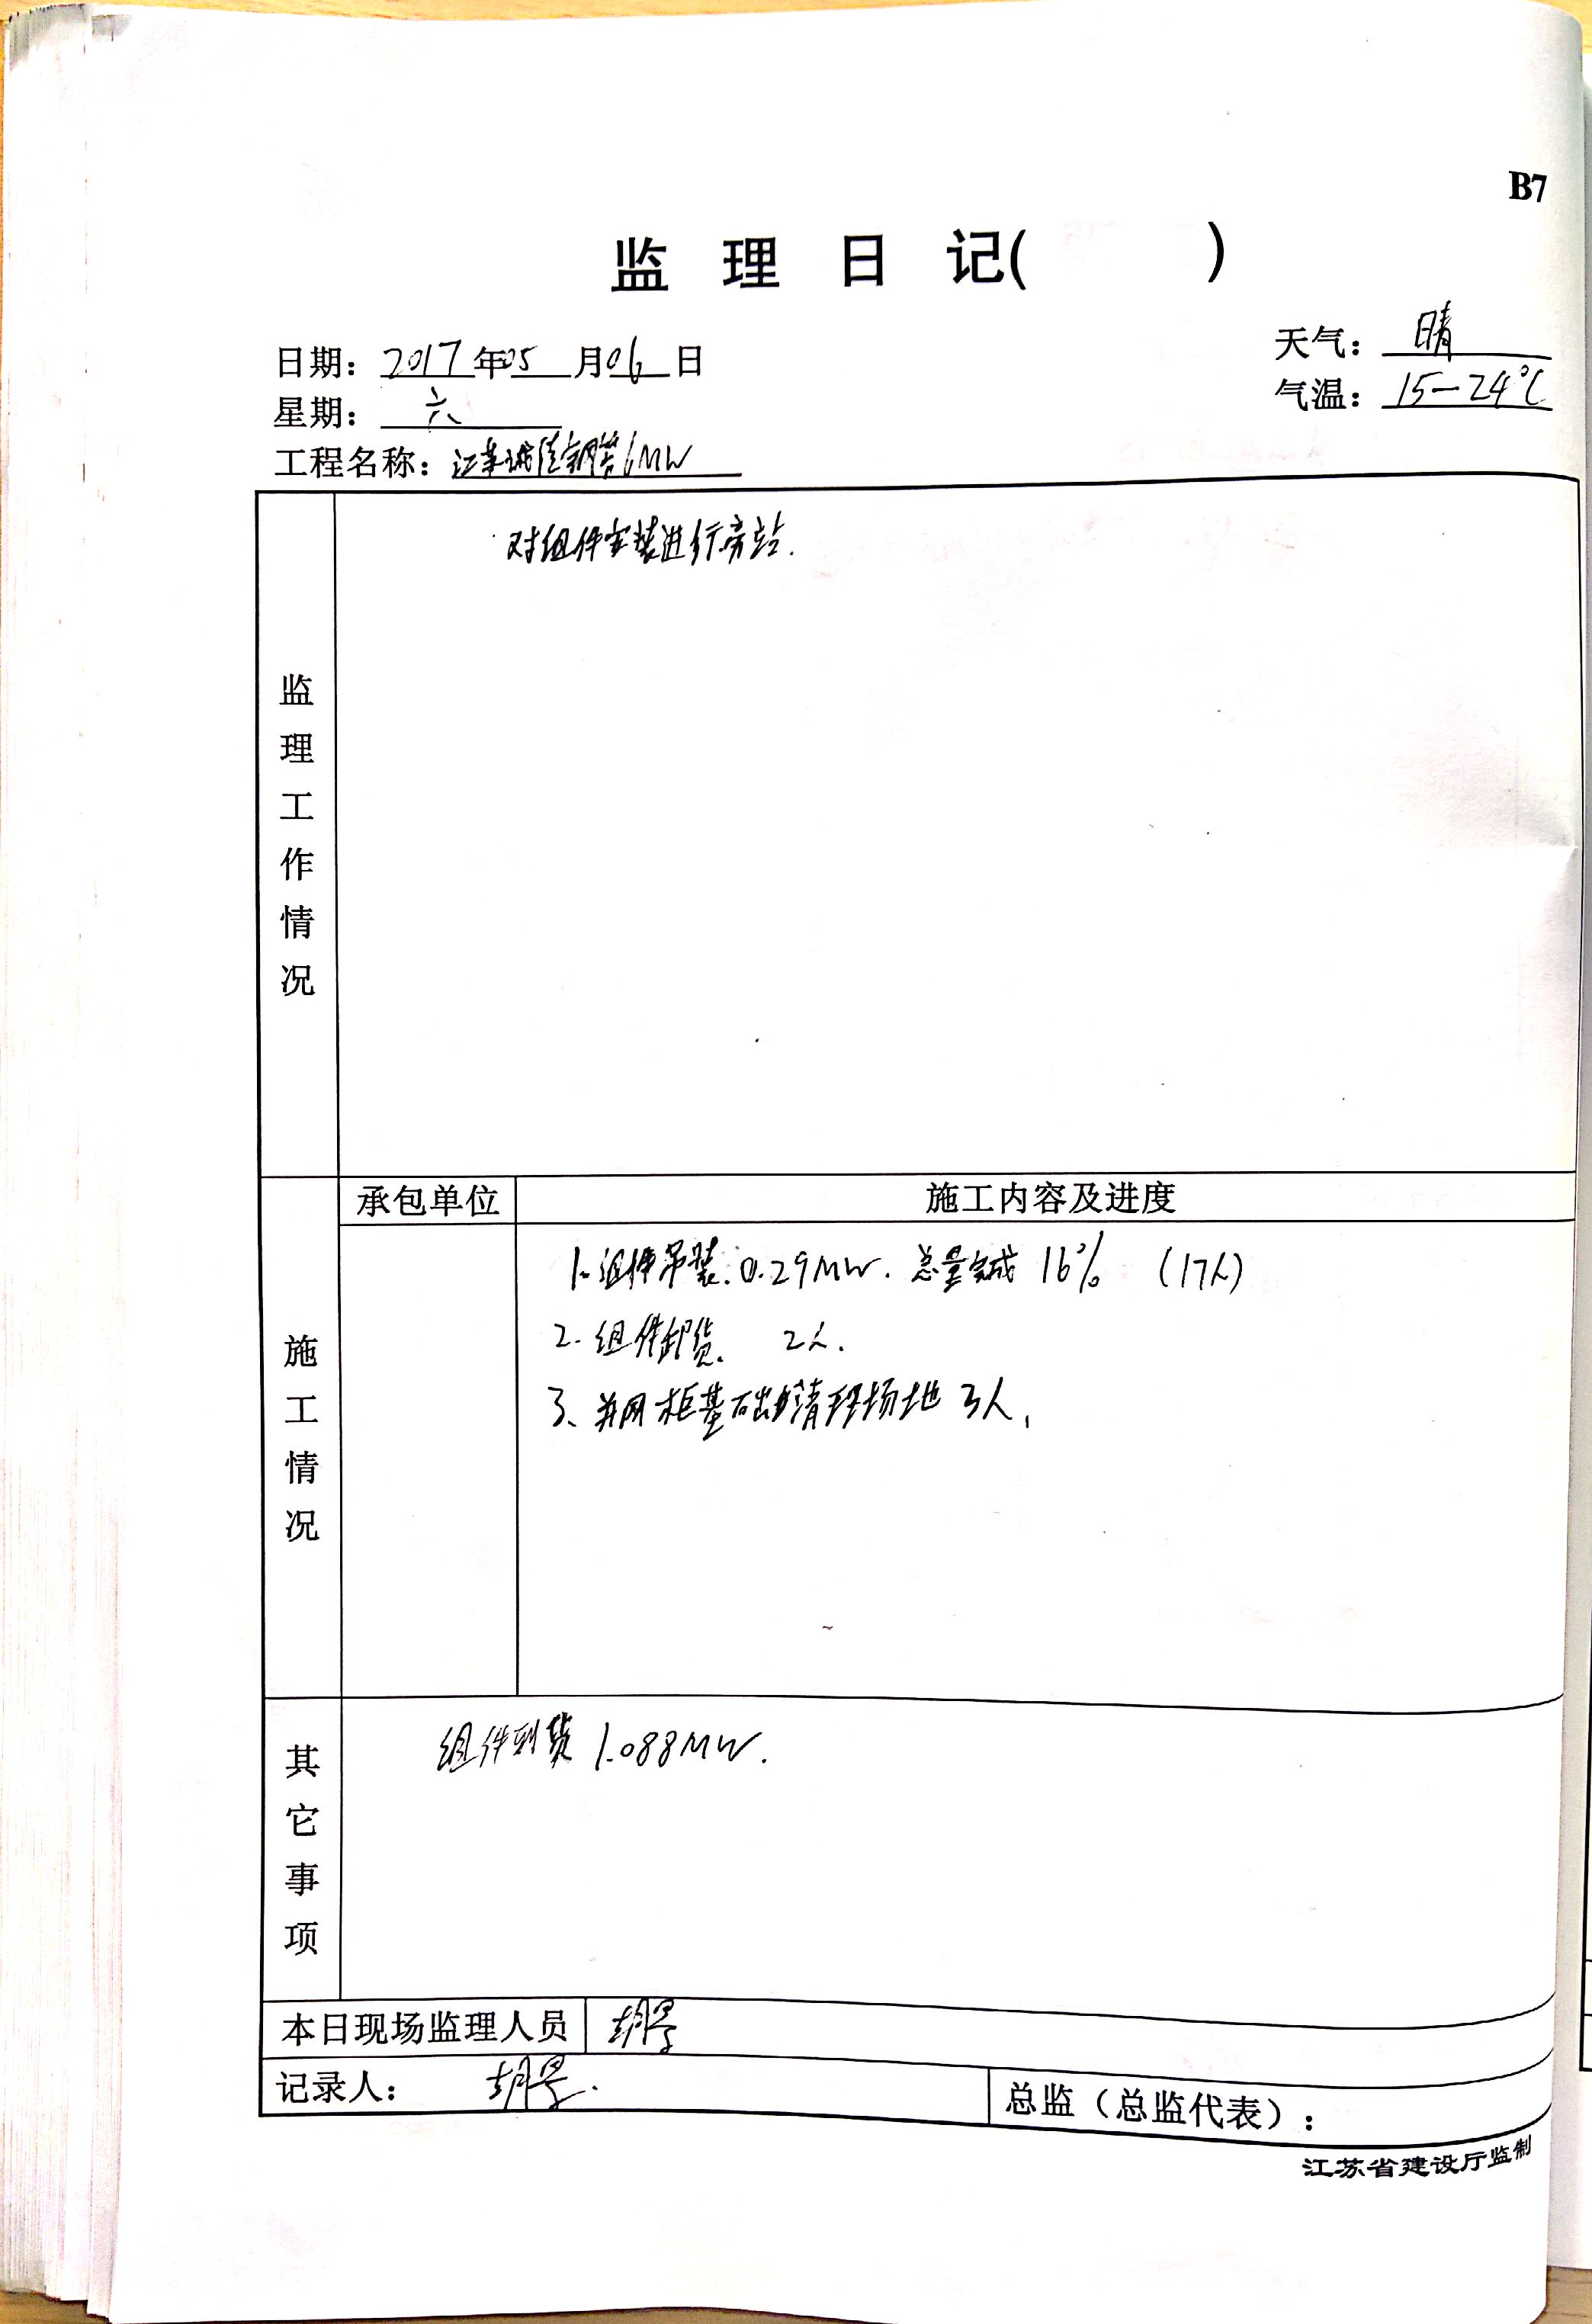 B7
监 理 日 记( )
日期：2017年05月06日
天气：晴
星期：六
气温：15-24℃
工程名称：江苏诚信钢管6MW
对组件安装进行旁站.
监理工作情况
承包单位
施工内容及进度
施工情况
1.组件吊装.0.29MW.总量完成16% (17人)
2.组件卸货. 2人.
3、并网柜基础清理场地 3人,
其它事项
组件到货1.088MW.
本日现场监理人员
记录人：
总监（总监代表）：
江苏省建设厅监制